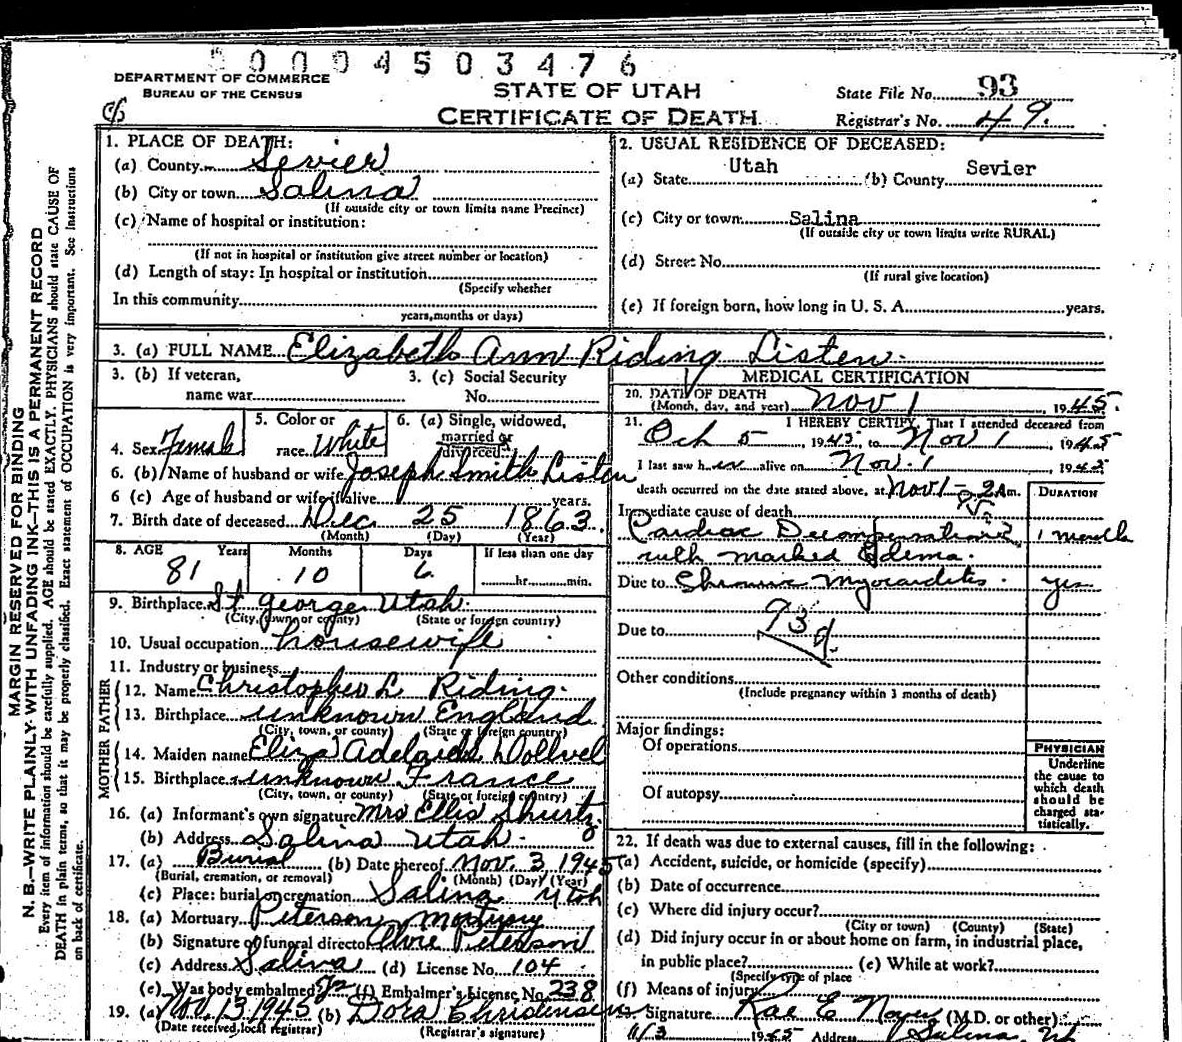 0 0 0 4 5 0 3 4 7 6
DEPARTMENT OF COMMERCE
BUREAU OF THE CENSUS
STATE OF UTAH
CERTIFICATE OF DEATH
State File No. 93
Registrar's No. 49
MARGIN RESERVED FOR BINDING
N. B.—WRITE PLAINLY WITH UNFADING INK—THIS IS A PERMANENT RECORD
Every item of information should be carefully supplied. AGE should be stated EXACTLY. PHYSICIANS should state CAUSE OF
DEATH in plain terms, so that it may be properly classified. Exact statement of OCCUPATION is very important. See instructions
on back of certificate.
1. PLACE OF DEATH:
(a) County Sevier
(b) City or town Salina
(If outside city or town limits name Precinct)
(c) Name of hospital or institution:
(If not in hospital or institution give street number or location)
(d) Length of stay: In hospital or institution
(Specify whether
In this community
years, months or days)
2. USUAL RESIDENCE OF DECEASED:
(a) State Utah (b) County Sevier
(c) City or town Salina
(If outside city or town limits write RURAL)
(d) Street No.
(If rural give location)
(e) If foreign born, how long in U. S. A. years.
3. (a) FULL NAME Elizabeth Ann Riding Listen
3. (b) If veteran, name war
3. (c) Social Security No.
4. Sex Female
5. Color or race White
6. (a) Single, widowed, married or divorced
6. (b) Name of husband or wife Joseph Smith Liston
6 (c) Age of husband or wife if alive years.
7. Birth date of deceased Dec 25 1863
(Month) (Day) (Year)
8. AGE Years Months Days If less than one day
81 10 6 hr. min.
9. Birthplace St George Utah
(City, town or county) (State or foreign country)
10. Usual occupation housewife
11. Industry or business
FATHER
12. Name Christopher L Riding
13. Birthplace unknown England
(City, town, or county) (State or foreign country)
MOTHER
14. Maiden name Eliza Adelaide Dollvel
15. Birthplace unknown France
(City, town, or county) (State or foreign country)
16. (a) Informant's own signature Mrs Ellis Shurtz
(b) Address Salina Utah
17. (a) Burial (b) Date thereof Nov. 3 1945
(Burial, cremation, or removal) (Month) (Day) (Year)
(c) Place: burial or cremation Salina Utah
18. (a) Mortuary Peterson Mortuary
(b) Signature of funeral director Peterson
(c) Address Salina (d) License No. 104
(e) Was body embalmed (f) Embalmer's License No. 238
19. (a) Nov. 13 1945 (b) Dora Christensen
(Date received local registrar) (Registrar's signature)
MEDICAL CERTIFICATION
20. DATE OF DEATH
(Month, day, and year) Nov 1, 1945.
21. I HEREBY CERTIFY, That I attended deceased from
Oct 5, 1945, to Nov 1, 1945
I last saw h er alive on Nov. 1, 1945
death occurred on the date stated above, at Nov 1 - 2 A m.
DURATION
Immediate cause of death
Cardiac Decompensation 1 month
with marked Edema.
Due to Chronic Myocarditis. yrs
Due to 93d
Other conditions
(Include pregnancy within 3 months of death)
Major findings:
Of operations
Of autopsy
PHYSICIAN
Underline
the cause to
which death
should be
charged sta-
tistically.
22. If death was due to external causes, fill in the following:
(a) Accident, suicide, or homicide (specify)
(b) Date of occurrence
(c) Where did injury occur?
(City or town) (County) (State)
(d) Did injury occur in or about home on farm, in industrial place,
in public place? (e) While at work?
(Specify type of place
(f) Means of injury
Signature Rae E Noyes (M.D. or other)
11/3 1945 Address Salina, Ut